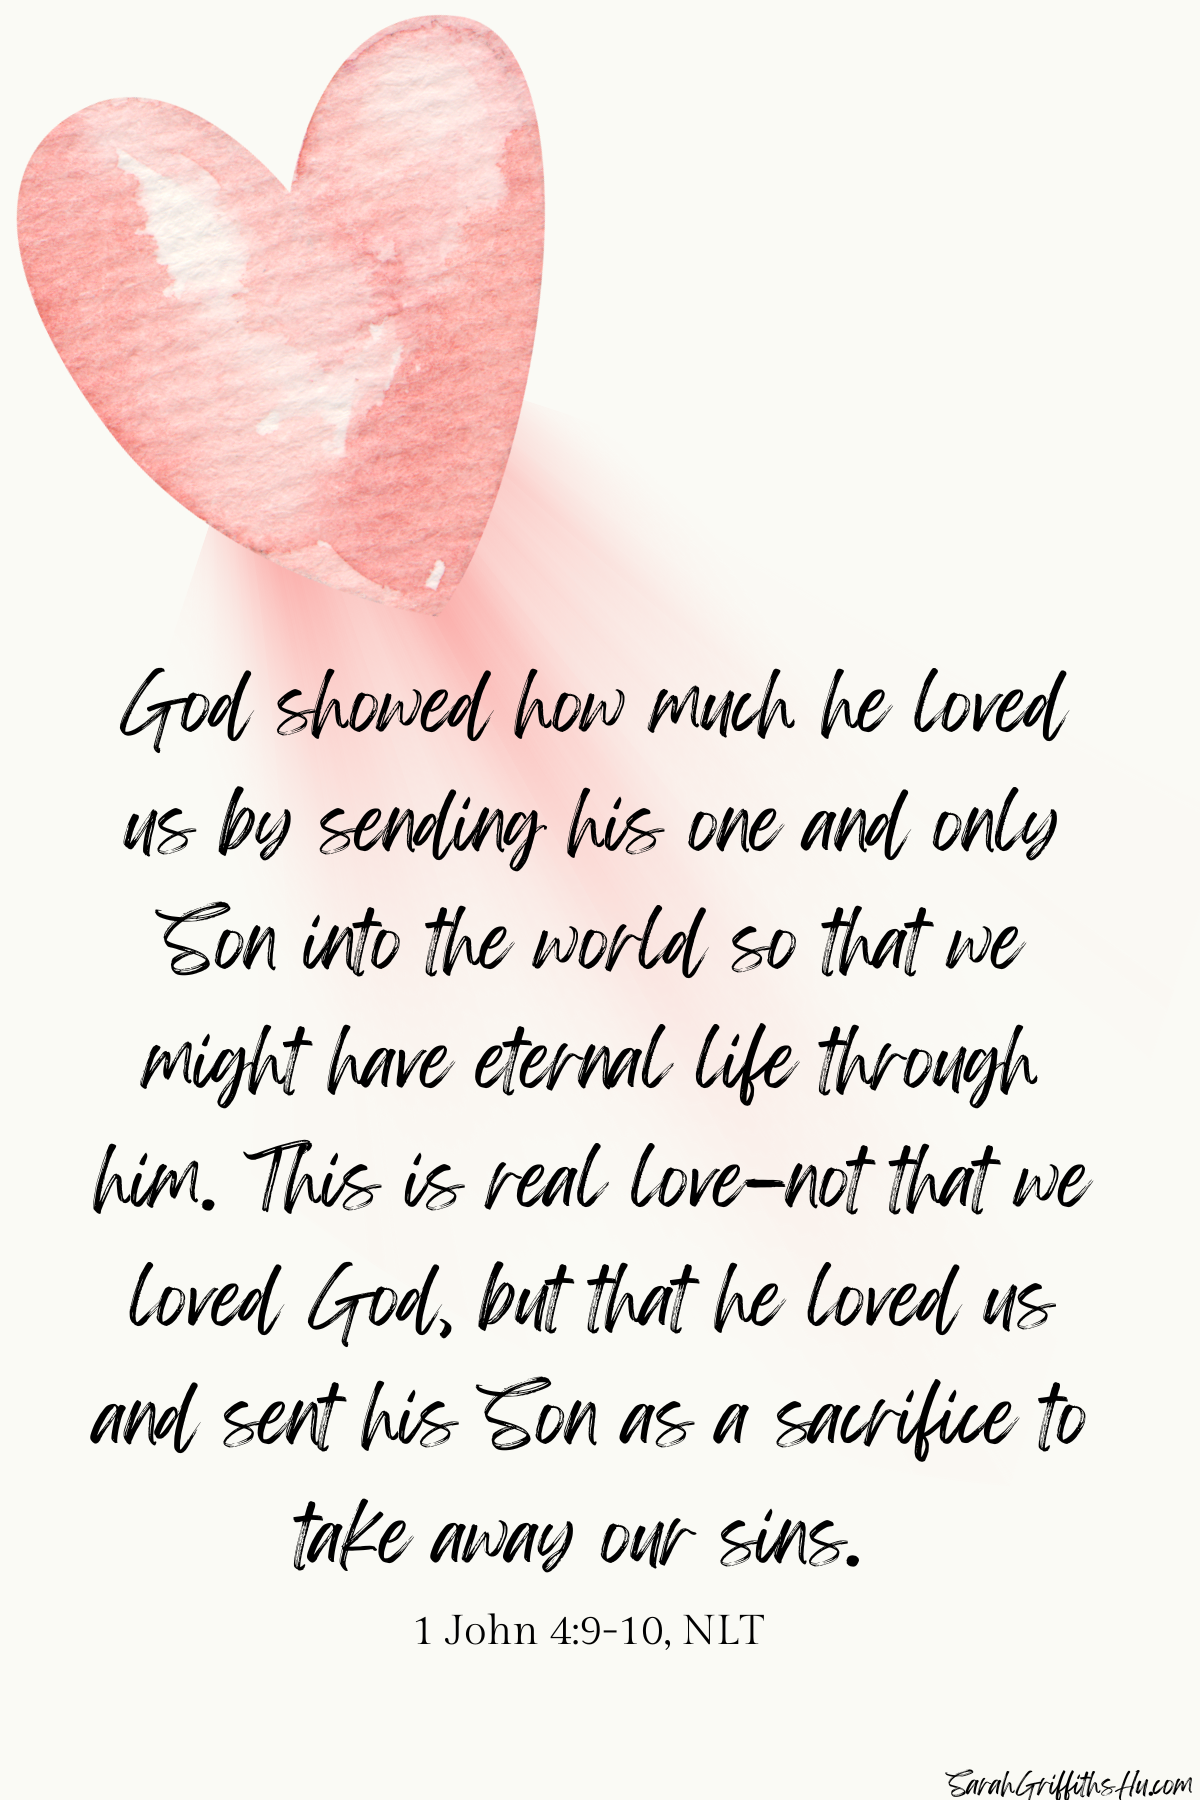 God showed how much he loved
us by sending his one and only
Son into the world so that we
might have eternal life through
him. This is real love—not that we
loved God, but that he loved us
and sent his Son as a sacrifice to
take away our sins.
1 John 4:9-10, NLT
SarahGriffithsHu.com